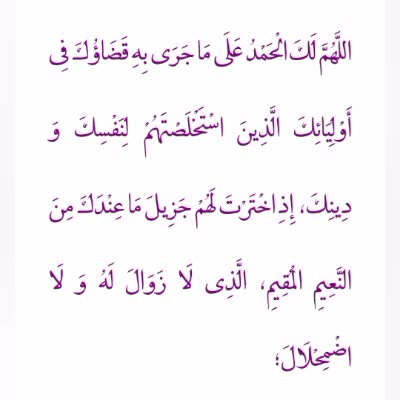 اللَّهُمَّ لَكَ الْحَمْدُ عَلَى مَا جَرَى بِهِ قَضَاؤُكَ فِى
أَوْلِيَائِكَ الَّذِينَ اسْتَخْلَصْتَهُمْ لِنَفْسِكَ وَ
دِينِكَ، إِذِ اخْتَرْتَ لَهُمْ جَزِيلَ مَا عِنْدَكَ مِنَ
النَّعِيمِ الْمُقِيمِ، الَّذِى لَا زَوَالَ لَهُ وَ لَا
اضْمِحْلَالَ؛